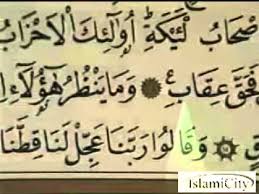 صْحَابُ لْـَٔيْكَةِ أُولَٰٓئِكَ الْأَحْزَابُ
فَحَقَّ عِقَابِ وَمَا يَنظُرُ هَٰٓؤُلَآءِ إ
قٍ وَقَالُوا رَبَّنَا عَجِّل لَّنَا قِطَّنَا
IslamiCity